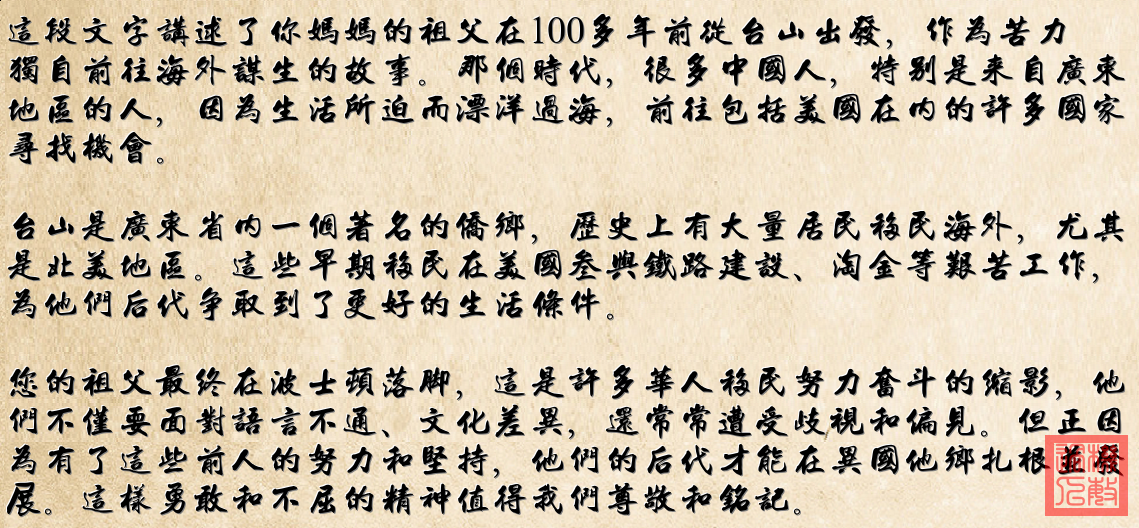 這段文字講述了你媽媽的祖父在100多年前從台山出發，作為苦力
獨自前往海外謀生的故事。那個時代，很多中國人，特別是來自廣東
地區的人，因為生活所迫而漂洋過海，前往包括美國在內的許多國家
尋找機會。
台山是廣東省內一個著名的僑鄉，歷史上有大量居民移民海外，尤其
是北美地區。這些早期移民在美國參與鐵路建設、淘金等艱苦工作，
為他們后代爭取到了更好的生活條件。
您的祖父最終在波士頓落腳，這是許多華人移民努力奮斗的縮影，他
們不僅要面對語言不通、文化差異，還常常遭受歧視和偏見。但正因
為有了這些前人的努力和堅持，他們的后代才能在異國他鄉扎根並發
展。這樣勇敢和不屈的精神值得我們尊敬和銘記。